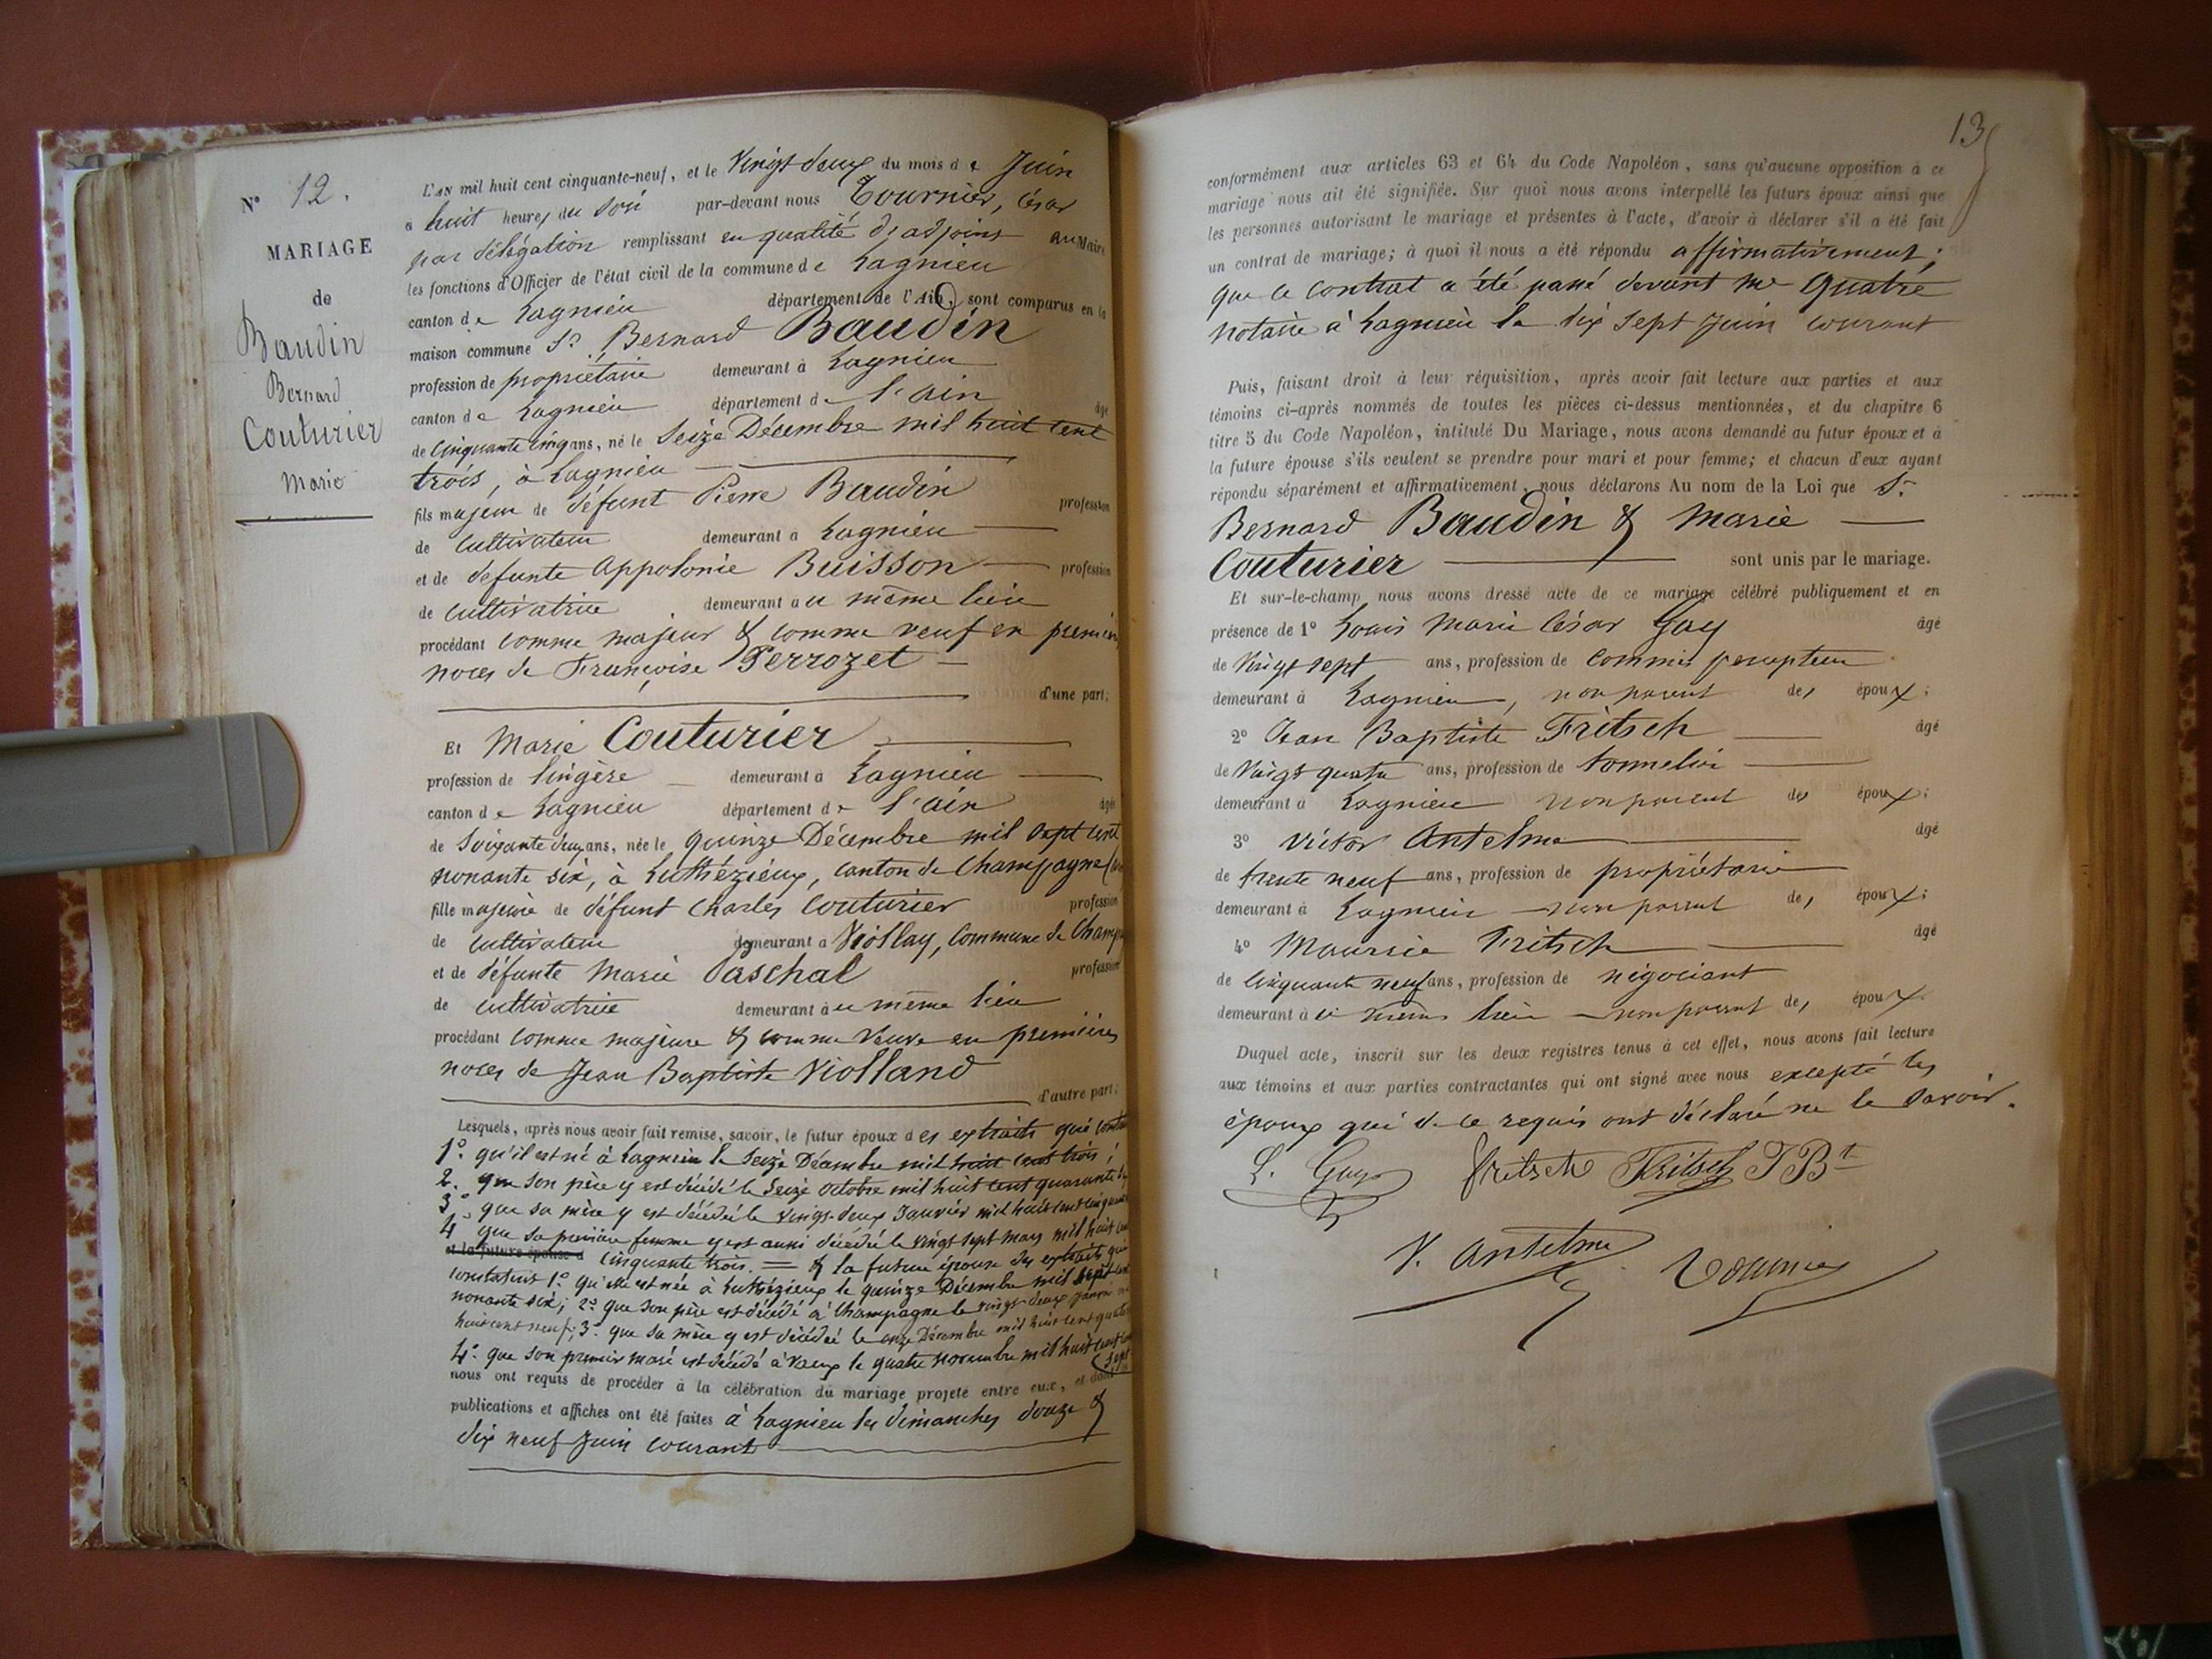 N° 12.
MARIAGE
de
Baudin
Bernard
Couturier
Marie
L'AN mil huit cent cinquante-neuf, et le vingt deux du mois de Juin
à huit heures du soir par-devant nous Tournier, César
par délégation remplissant en qualité d'adjoint au Maire
les fonctions d'Officier de l'état civil de la commune de Lagnieu
canton de Lagnieu département de l'Ain, sont comparus en la
maison commune Sr Bernard Baudin
profession de propriétaire demeurant à Lagnieu
canton de Lagnieu département de l'ain âgé
de cinquante cinq ans, né le seize Décembre mil huit cent
trois, à Lagnieu
fils majeur de défunt Pierre Baudin profession
de cultivateur demeurant à Lagnieu
et de défunte Appolonie Buisson profession
de cultivatrice demeurant au même lieu
procédant comme majeur & comme veuf en premières
noces de Françoise Perrozet
d'une part;
Et Marie Couturier
profession de lingère demeurant à Lagnieu
canton de Lagnieu département de l'ain âgée
de soixante deux ans, née le quinze Décembre mil sept cent
nonante six, à Luthézieux, canton de Champagne
fille majeure de défunt Charles Couturier profession
de cultivateur demeurant à Viollay, commune de Champ
et de défunte Marie Paschal profession
de cultivatrice demeurant au même lieu
procédant comme majeure & comme veuve en premières
noces de Jean Baptiste Violland
d'autre part;
Lesquels, après nous avoir fait remise, savoir, le futur époux des extraits qui
1° qu'il est né à Lagnieu le seize Décembre mil huit cent trois;
2° que son père y est décédé le seize octobre mil huit cent quarante
3° que sa mère y est décédée le vingt-deux Janvier mil huit cent
4° que sa première femme y est aussi décédée le vingt sept mars mil huit cent
et la future épouse d cinquante trois. = & la future épouse des extraits qui
constatent 1° qu'elle est née à Luthézieux le quinze Décembre mil sept cent
nonante six; 2° que son père est décédé à Champagne le vingt-deux
huit cent neuf; 3° que sa mère y est décédée le onze Décembre mil huit cent
4° que son premier mari est décédé à Vaux le quatre novembre mil huit cent
sept
nous ont requis de procéder à la célébration du mariage projeté entre eux, et dont
publications et affiches ont été faites à Lagnieu les dimanches douze &
dix neuf Juin courant
13
conformément aux articles 63 et 64 du Code Napoléon, sans qu'aucune opposition à ce
mariage nous ait été signifiée. Sur quoi nous avons interpellé les futurs époux ainsi que
les personnes autorisant le mariage et présentes à l'acte, d'avoir à déclarer s'il a été fait
un contrat de mariage; à quoi il nous a été répondu affirmativement;
que le contrat a été passé devant Me Quatre
notaire à Lagnieu le dix sept Juin courant
Puis, faisant droit à leur réquisition, après avoir fait lecture aux parties et aux
témoins ci-après nommés de toutes les pièces ci-dessus mentionnées, et du chapitre 6
titre 5 du Code Napoléon, intitulé Du Mariage, nous avons demandé au futur époux et à
la future épouse s'ils veulent se prendre pour mari et pour femme; et chacun d'eux ayant
répondu séparément et affirmativement, nous déclarons Au nom de la Loi que Sr
Bernard Baudin & Marie
Couturier sont unis par le mariage.
Et sur-le-champ nous avons dressé acte de ce mariage célébré publiquement et en
présence de 1° Louis Marie César Guy âgé
de vingt sept ans, profession de commis percepteur
demeurant à Lagnieu, non parent des époux;
2° Jean Baptiste Fritsch âgé
de vingt quatre ans, profession de tonnelier
demeurant à Lagnieu non parent des époux;
3° Victor Antelme âgé
de trente neuf ans, profession de propriétaire
demeurant à Lagnieu non parent des époux;
4° Maurice Fritsch âgé
de cinquante neuf ans, profession de négociant
demeurant à ce même lieu non parent des époux.
Duquel acte, inscrit sur les deux registres tenus à cet effet, nous avons fait lecture
aux témoins et aux parties contractantes qui ont signé avec nous excepté les
époux qui de ce requis ont déclaré ne le savoir.
L. Guy fritsch Fritsch J Bt
V. Antelme Tournier